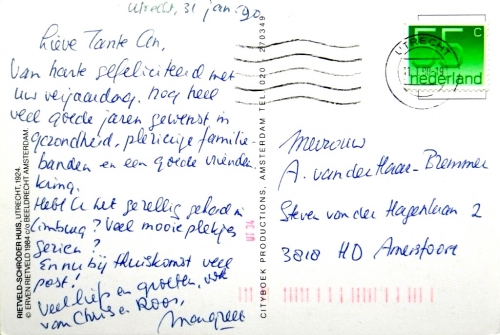 Utrecht, 31 jan. '90
Lieve Tante An,
Van harte gefeliciteerd met
uw verjaardag. Nog heel
veel goede jaren gewenst in
gezondheid, plezierige familie-
banden en een goede vrienden
kring.
Hebt U het gezellig gehad in
Limburg? Veel mooie plekjes
gezien?
En nu bij thuiskomst veel
post!
Veel liefs en groeten, ook
van Chris en Roos,
Margreet
RIETVELD-SCHRÖDER HUIS, UTRECHT, 1924.
© ERVEN RIETVELD 1984 c/o BEELDRECHT AMSTERDAM.
CITYBOEK PRODUCTIONS, AMSTERDAM TEL. 020 - 270349
UTRECHT
55 c
nederland
Mevrouw
A. van der Haar-Bremmer
Steven van der Hagenlaan 2
3818 HD Amersfoort